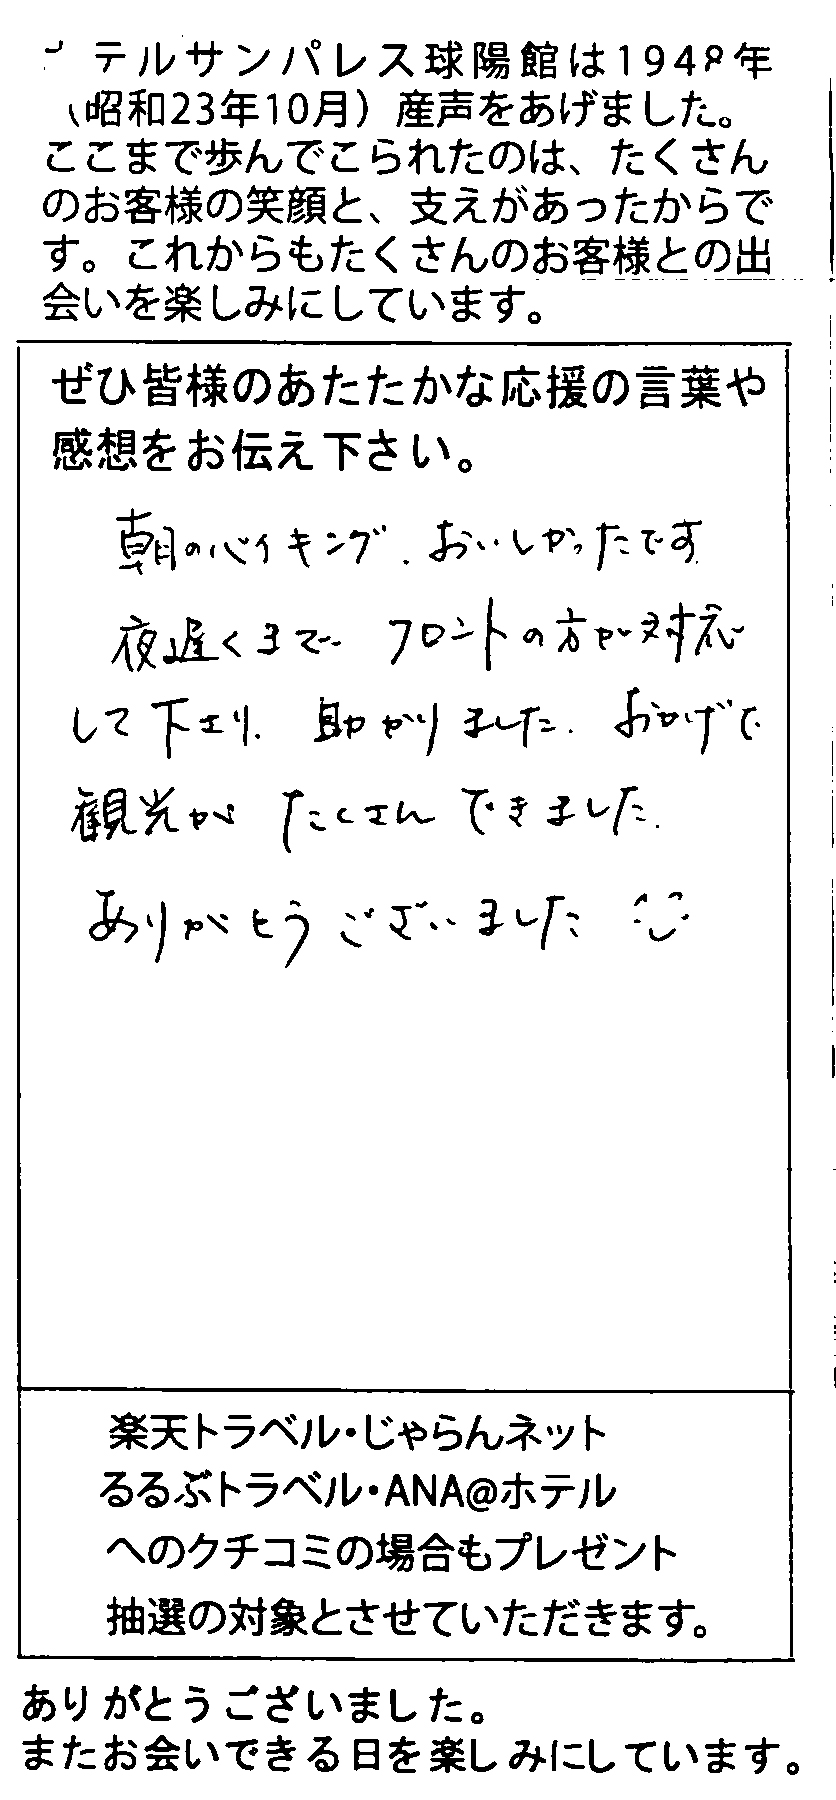 テルサンパレス球陽館は1948年
（昭和23年10月）産声をあげました。
ここまで歩んでこられたのは、たくさん
のお客様の笑顔と、支えがあったからで
す。これからもたくさんのお客様との出
会いを楽しみにしています。
ぜひ皆様のあたたかな応援の言葉や
感想をお伝え下さい。
朝のバイキング、おいしかったです
夜遅くまで フロントの方が対応
して下さり、助かりました。おかげで
観光が たくさん できました。
ありがとうございました
楽天トラベル・じゃらんネット
るるぶトラベル・ANA@ホテル
へのクチコミの場合もプレゼント
抽選の対象とさせていただきます。
ありがとうございました。
またお会いできる日を楽しみにしています。